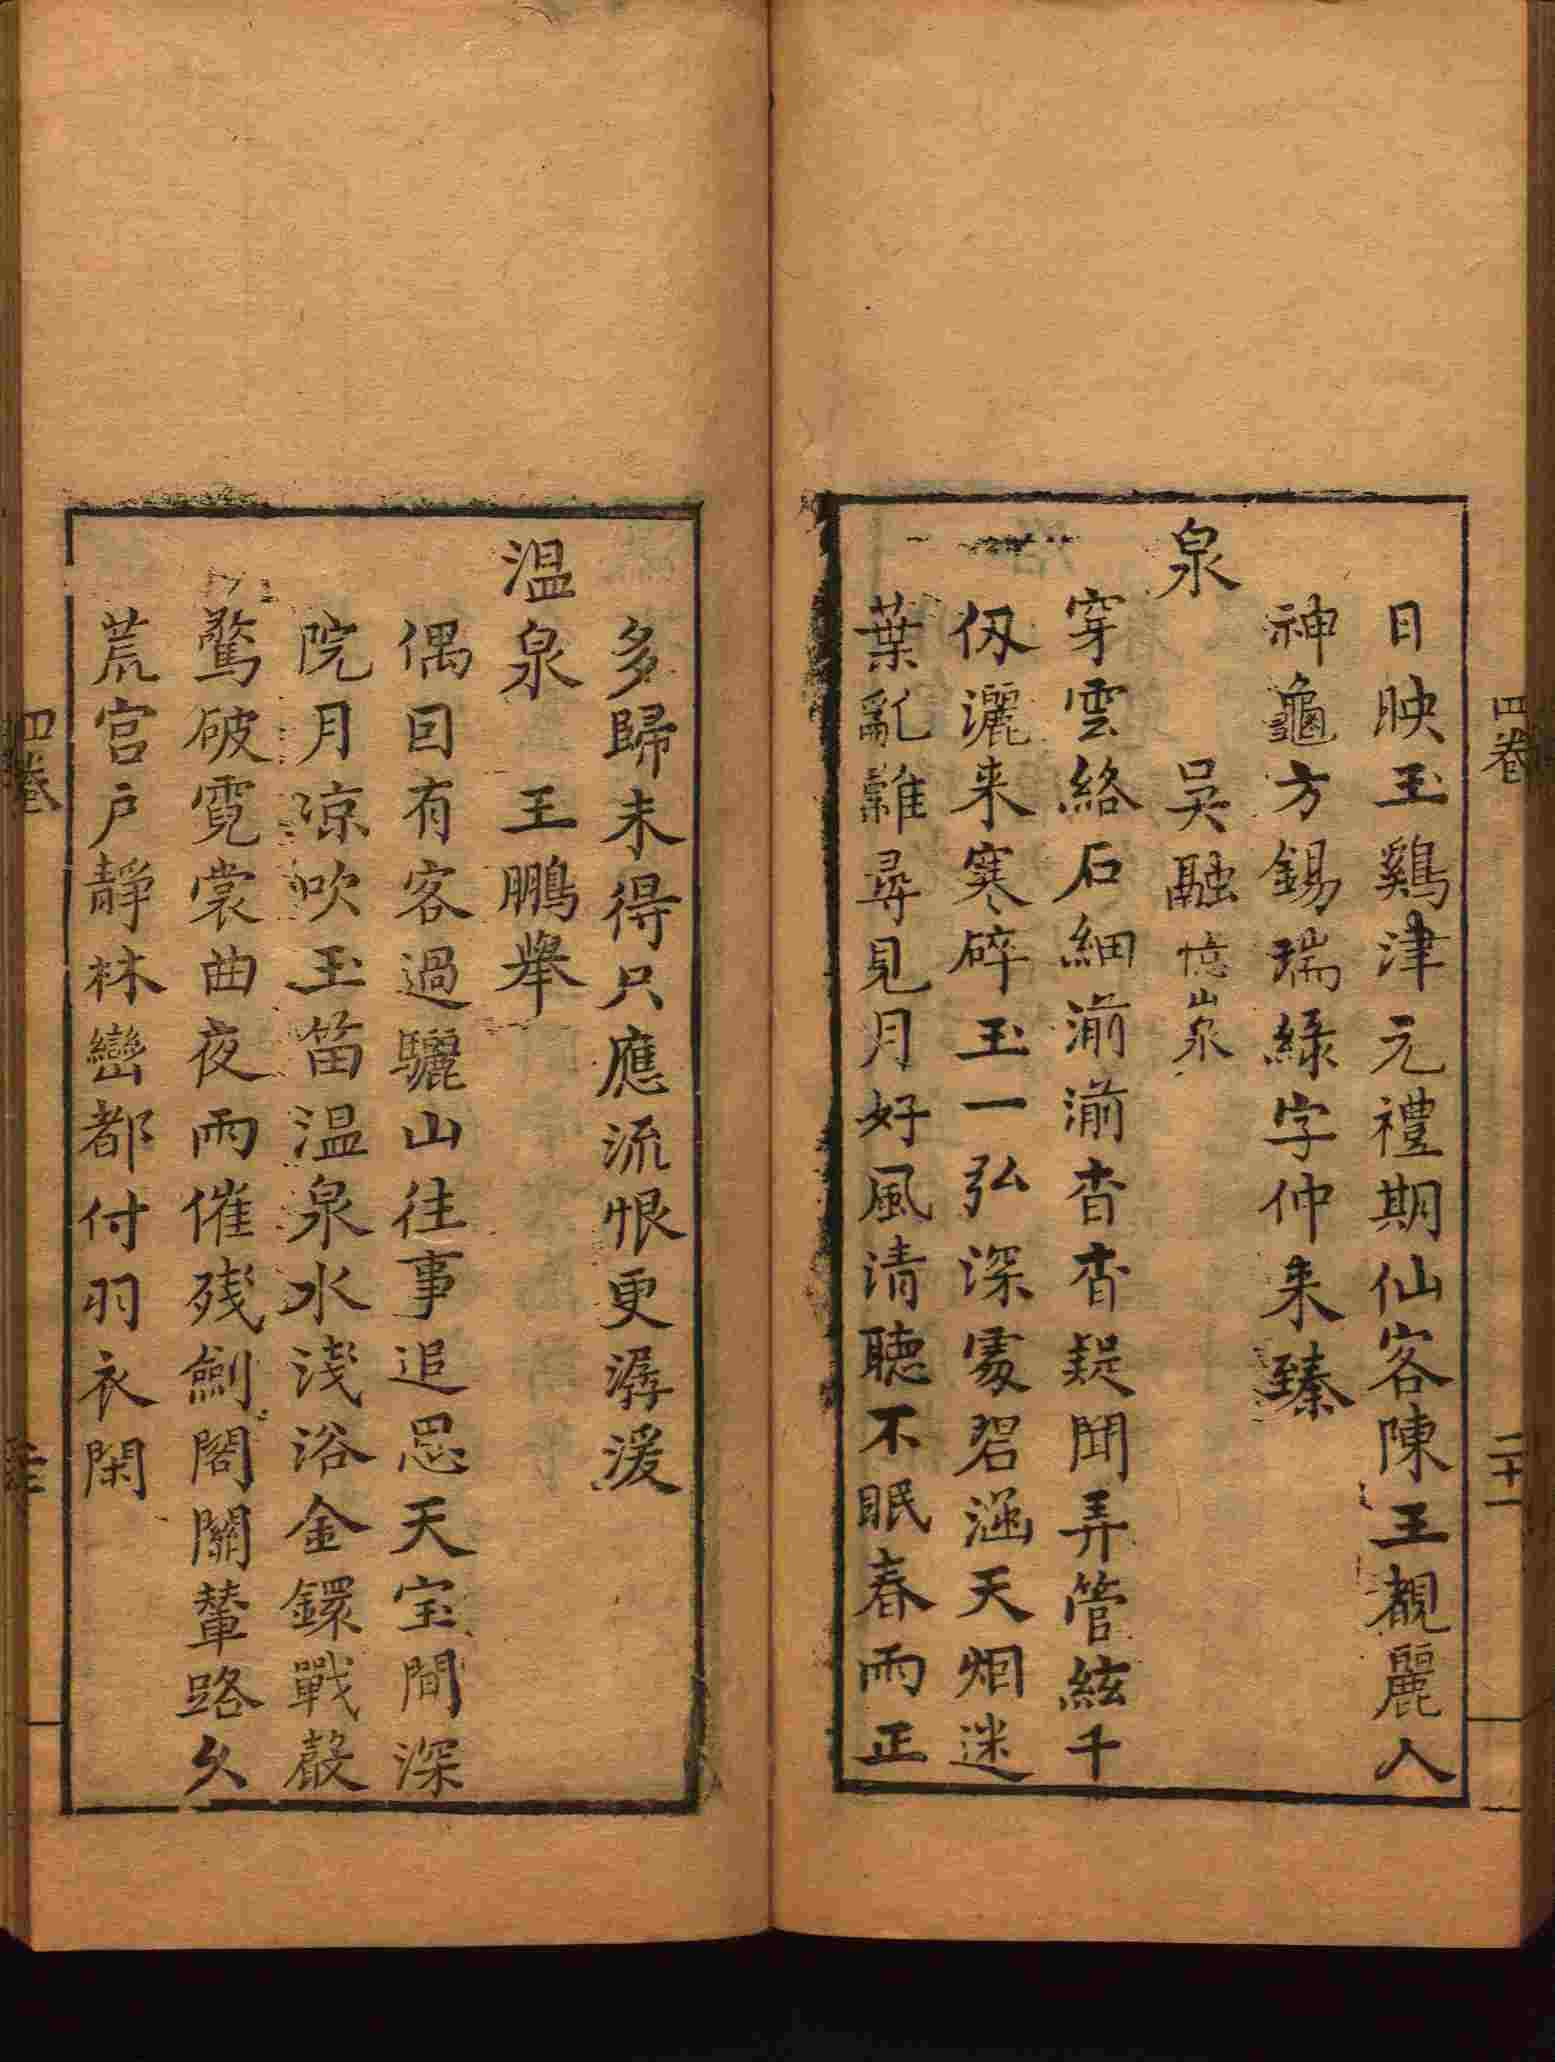 四卷
二十一
日映玉鷄津元禮期仙客陳王覩麗人
神龜方錫瑞綠字仲来臻
泉
吳融憶山泉
穿雲絡石細湔湔杳杳疑聞弄管絃千
仭灑来寒碎玉一弘深處碧涵天烟迷
葉亂難尋見月好風清聽不眠春雨正
多歸未得只應流恨更潺湲
温泉 王鵬舉
偶因有客過驪山往事追思天宝間深
院月凉吹玉笛温泉水淺浴金鐶戰鼓
驚破霓裳曲夜雨催殘劍閣關輦路久
荒宫户靜林巒都付羽衣閑
四卷